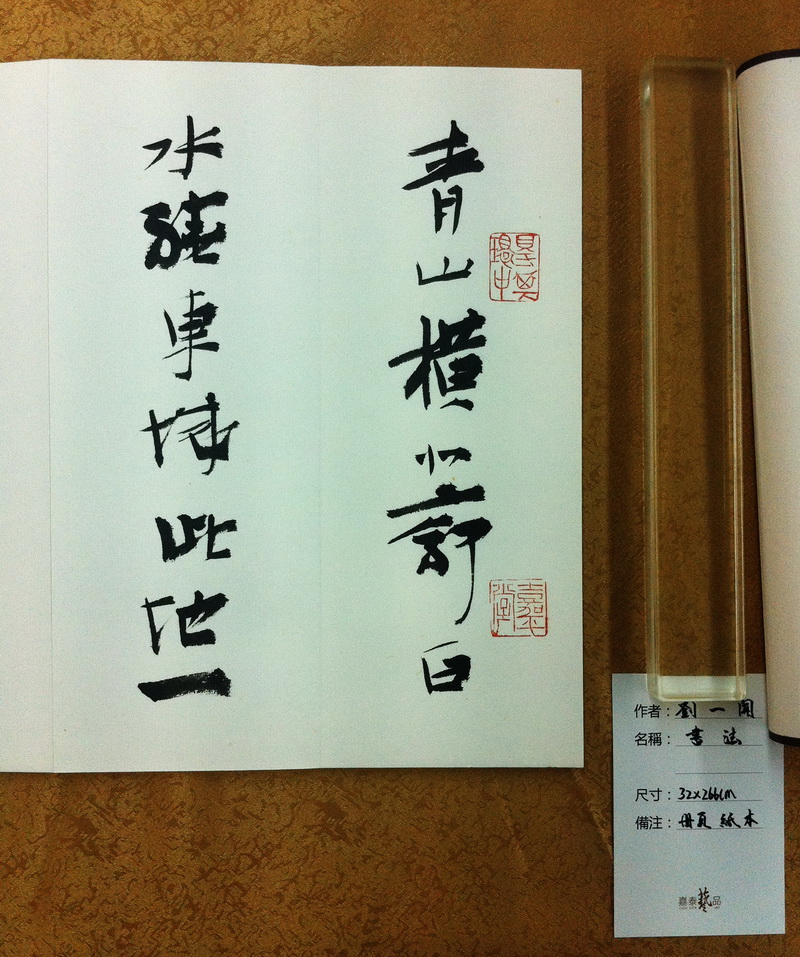 青山橫北郭白
水繞東城此地一
作者：劉一聞
名稱：書法
尺寸：32x266cm
備注：冊頁 紙本
嘉泰藝品